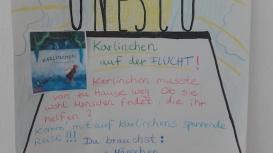 UNESCO
KARLINCHEN
Karlinchen
auf der FLUCHT!
Karlinchen musste
von zu Hause weg. Ob sie
wohl Menschen findet, die ihr
helfen?
Komm mit auf Karlinchens spannende
Reise!!! Du brauchst: